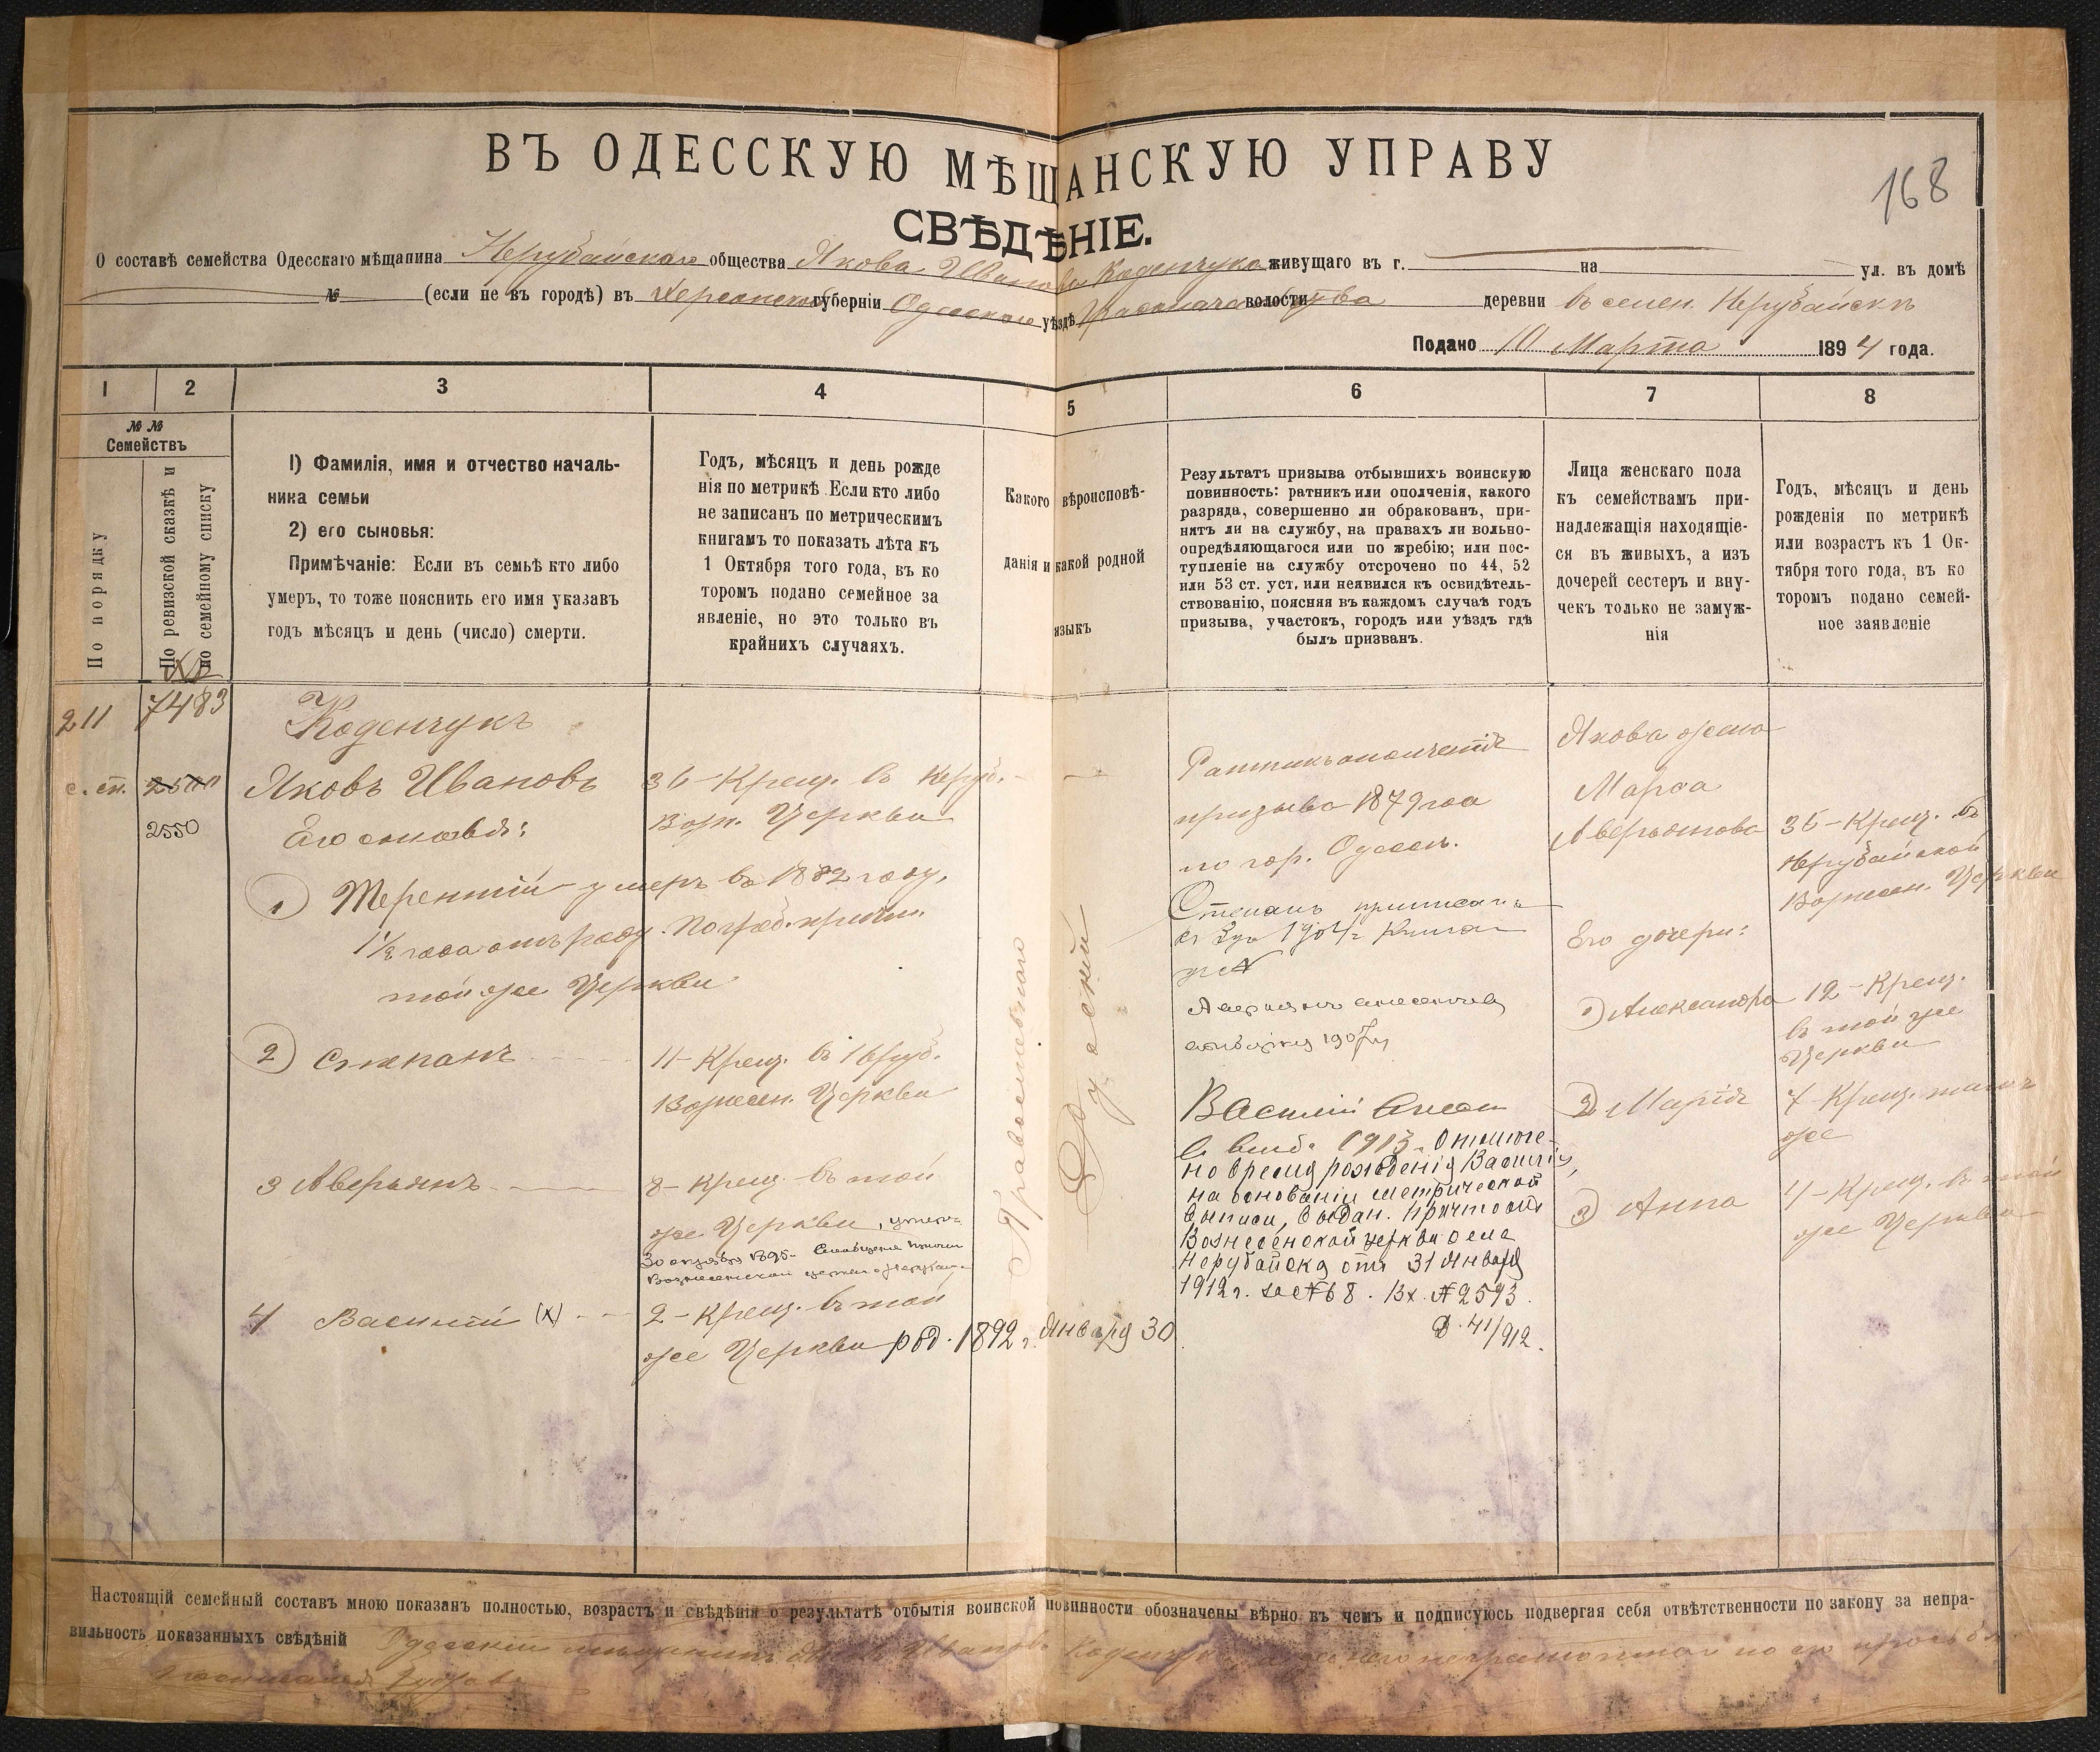 168
ВЪ ОДЕССКУЮ МѢЩАНСКУЮ УПРАВУ
СВѢДѢНІЕ.
О составѣ семейства Одесскаго мѣщанина Нерубайскаго общества Якова Иванова Коденчука живущаго въ г. на ул. въ домѣ
№ (если не въ городѣ) въ Херсонской губерніи Одесскаго уѣздѣ волости деревни въ селен. Нерубайскѣ
Подано 10 Марта 1894 года.
1
2
3
4
5
6
7
8
№ №
Семействъ
По порядку
По ревизской сказкѣ и
по семейному списку
1) Фамилія, имя и отчество началь-
ника семьи
2) его сыновья:
Примѣчаніе: Если въ семьѣ кто либо
умеръ, то тоже пояснить его имя указавъ
годъ мѣсяцъ и день (число) смерти.
Годъ, мѣсяцъ и день рожде
нія по метрикѣ Если кто либо
не записанъ по метрическимъ
книгамъ то показать лѣта къ
1 Октября того года, въ ко
торомъ подано семейное за
явленіе, но это только въ
крайнихъ случаяхъ.
Какого вѣроисповѣ-
данія и какой родной
языкъ
Результатъ призыва отбывшихъ воинскую
повинность: ратникъ или ополченія, какого
разряда, совершенно ли обракованъ, при-
нятъ ли на службу, на правахъ ли вольно-
опредѣляющагося или по жребію; или пос-
тупленіе на службу отсрочено по 44, 52
или 53 ст. уст. или неявился къ освидѣтель-
ствованію, поясняя въ каждомъ случаѣ годъ
призыва, участокъ, городъ или уѣздъ гдѣ
былъ призванъ.
Лица женскаго пола
къ семействамъ при-
надлежащія находящіе-
ся въ живыхъ, а изъ
дочерей сестеръ и вну-
чекъ только не замуж-
нія
Годъ, мѣсяцъ и день
рожденія по метрикѣ
или возрастъ къ 1 Ок-
тября того года, въ ко
торомъ подано семей-
ное заявленіе
211
7483
с. сп.
2550
Коденчукъ
Яковъ Ивановъ
Его сыновья:
1 Терентій умеръ въ 1882 году,
1½ года отъ роду. Погреб. при
той же Церкви
2) Степанъ
3 Аверьянъ
4 Василій (х)
36 - Крещ. въ Неруб.
Возн. Церкви
11 - Крещ. въ Неруб.
Вознесен. Церкви
8 - Крещ. въ той
же Церкви, умеръ
Вознесенской церкви
2 - Крещ. въ той
же Церкви род. 1892 г. Января 30
Православнаго
Русскій
Ратникъ ополченія
призыва 1879 года
по гор. Одессѣ.
Степанъ приписанъ
1904 г.
1907 г.
Василій
1913. Относитель-
но время рожденія Василія,
на основаніи метрической
выписи, выдан. причтомъ
Вознесенской церкви села
Нерубайска отъ 31 Января
1912 г. за № 68. Вх. № 2593.
Д. 41/912.
Якова жена
Марфа
Аверьянова
Его дочери:
1) Александра
2) Марія
3) Анна
36 - Крещ. въ
Нерубайской
Вознесен. Церкви
12 - Крещ.
въ той же
Церкви
7 - Крещ. тамъ
же
4 - Крещ. въ той
же Церкви
Настоящій семейный составъ мною показанъ полностью, возрастъ и свѣдѣнія о результатѣ отбытія воинской повинности обозначены вѣрно въ чемъ и подписуюсь подвергая себя отвѣтственности по закону за непра-
вильность показанныхъ свѣдѣній Одесскій мѣщанинъ Яковъ Ивановъ Коденчукъ, а за него неграмотнаго по его просьбѣ